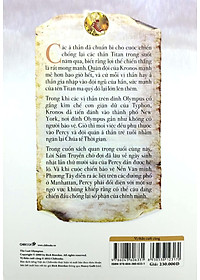 Các á thần đã chuẩn bị cho cuộc chiến
chống lại các thần Titan trong suốt
năm qua, biết rằng lợi thế chiến thắng
là rất mong manh. Quân đội của
Kronos mạnh
mẽ hơn bao giờ hết, và cứ mỗi vị thần hay á
thần gia nhập vào đội quân của hắn, sức
mạnh của tên Titan ma quỷ đó lại lớn lên thêm.
Trong khi các vị thần trên đỉnh Olympus cố
gắng kìm chế cơn thịnh nộ của Typhon,
Kronos đã tiến đánh vào thành phố New
York, nơi đỉnh Olympus gần như không có
người bảo vệ. Giờ thì mọi việc đều phụ thuộc
vào Percy và đội quân á thần trẻ tuổi nhằm
ngăn lại Chúa tể Thời gian.
Trong cuốn sách quan trọng cuối cùng này,
Lời Sấm Truyền chờ đợi đã lâu về ngày sinh
nhật lần thứ mười sáu của Percy dần được hé
lộ. Và khi cuộc chiến bảo vệ Nền Văn minh
Phương Tây diễn ra ác liệt trên các đường phố ở
Manhattan, Percy phải đối diện với một sự
ngờ vực khủng khiếp rằng có thể cậu đang
chiến đấu chống lại số phận của chính mình.